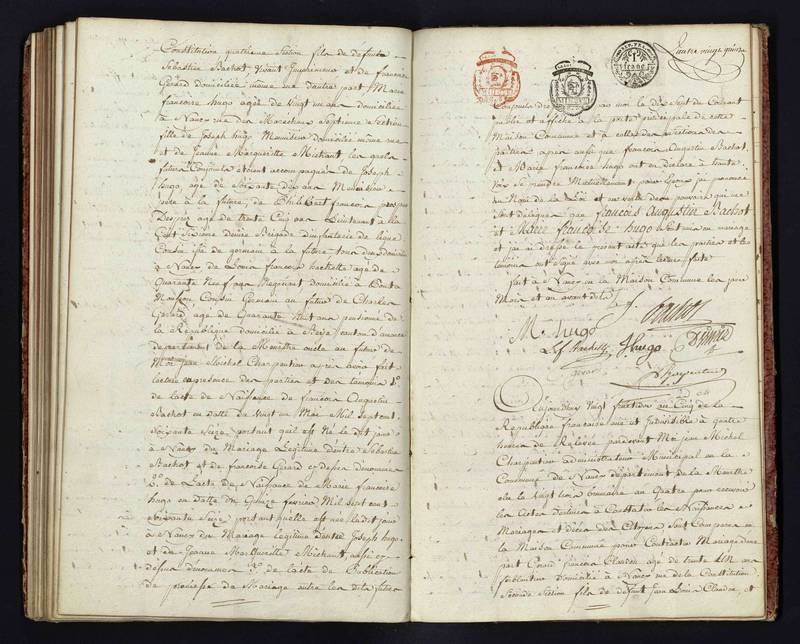 Constitution quatrieme Section fils de defunt
Sebastien Bachot, vivant Imprimeur et de francoise
Gerard domiciliée, même rue d'autre part Marie
francoise hugo agée de vingt un ans domiciliée
à Nancy rue des Marechaux Septieme Section
fille de Joseph hugo Menuisier domicilié même rue
et de Jeanne Marguerite Michaut, les quels
futurs Conjoints etoient accompagnés de Joseph
hugo, age de Soixante dix ans Menuisier
pere à la future, de Philibert francois prosper
age de trente Cinq ans Lieutenant à la
Cent demie Brigade d'infanterie de ligne
Cousin de germain à la future tous deux domiciliés
à Nancy de Louis francois hachette agé de
quarante neuf ans Negociant domicilié à Pont a
Mousson Cousin Germain au futur de Charles
Gerard agé de Quarante huit ans pensionné de
la République domicilié à canton d'amance
departement de la Meurthe oncle au futur de
Moi jean Michel Charpentier apres avoir fait
lecture en presence des parties et des temoins 1°.
de l'acte de Naissance de francois Augustin
Bachot en datte du Vingt un Mai Mil sept cent
Soixante Seize, portant qu'il est né le dit jour
à Nancy du Mariage Legitime d'entre Sebastien
Bachot et de francoise Gerard cy dessus denommés
2°. de L'acte de Naissance de Marie francoise
hugo en datte du Quinze fevrier Mil sept cent
Soixante Seize portant qu'elle est née ledit jour
à Nancy du Mariage legitime d'entre Joseph hugo
et de Jeanne Marguerite Michaut, aussi cy
dessus denommés 3°. de l'acte de Publication
de promesse de Mariage entre les dits futurs
franc
Conjoints dressé par moi le dix Sept du Courant
publié et affiché à la porte principale de cette
Maison Commune et à celle des Sections des
parties apres aussi que francois Augustin Bachot,
et Marie francoise hugo ont eu declaré à haute
voix se prendre Mutuellement pour Epoux j'ai prononcé
au Nom de la Loi et en vertu des pouvoirs qui me
sont delegués que francois Augustin Bachot
et Marie francoise hugo Sont unis en mariage
et j'ai dressé le present acte que les parties et les
temoins ont signé avec moi apres lecture faite
fait à Nancy en la Maison Commune les jour
Mois et an avant dits
Bachot
M f hugo
L f hachette J hugo
Charpentier
Aujourdhui Vingt fructidor an Cinq de la
République francaise une et indivisible à quatre
heures de Relevée pardevant Moi jean Michel
Charpentier administrateur Municipal en la
Commune de Nancy département de la Meurthe
elu le vingt un brumaire an Quatre pour recevoir
les Actes destinés à Constater les Naissances
Mariages et décès des Citoyens Sont Comparus en
la Maison Commune pour Contracter Mariage d'une
part Gerard francois Claudon agé de trente un ans
ferblantier domicilié à Nancy rue de la Constitution
Seconde Section fils de defunt jean Louis Claudon, et